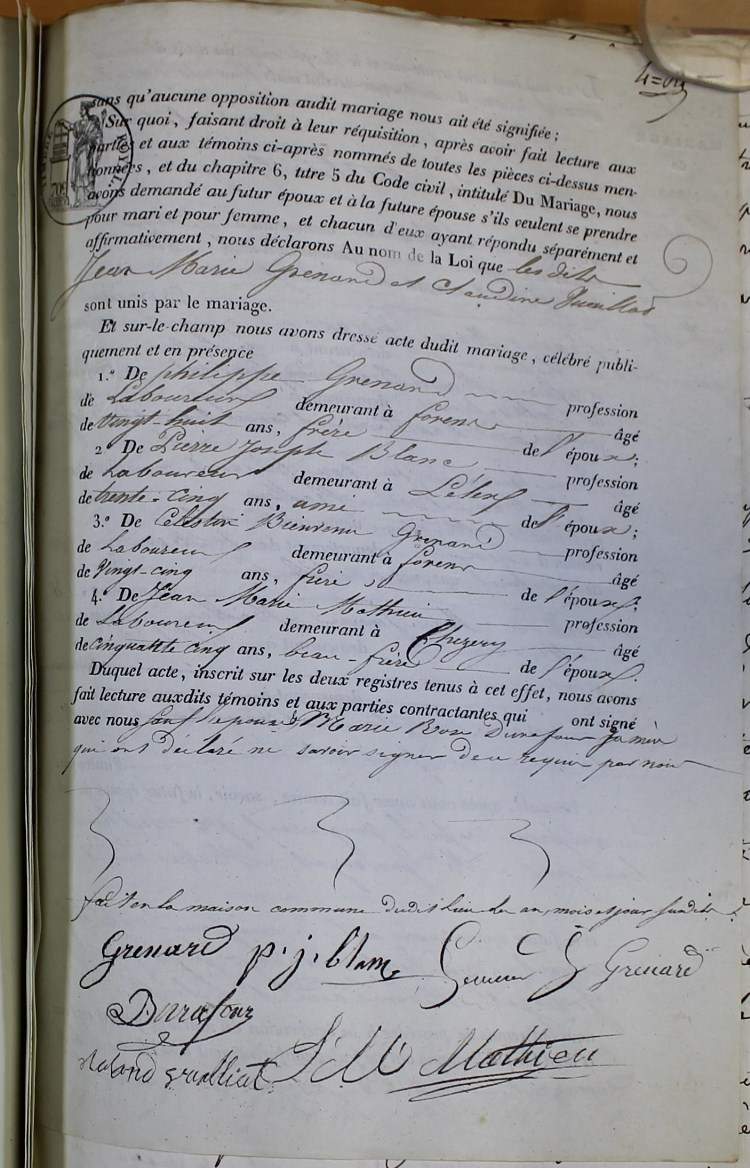 sans qu'aucune opposition audit mariage nous ait été signifiée ;
Sur quoi, faisant droit à leur réquisition, après avoir fait lecture aux
parties et aux témoins ci-après nommés de toutes les pièces ci-dessus men-
tionnées, et du chapitre 6, titre 5 du Code civil, intitulé Du Mariage, nous
avons demandé au futur époux et à la future épouse s'ils veulent se prendre
pour mari et pour femme, et chacun d'eux ayant répondu séparément et
affirmativement, nous déclarons Au nom de la Loi que les dits
Jean Marie Grenard et Claudine
sont unis par le mariage.
Et sur-le-champ nous avons dressé acte dudit mariage, célébré publi-
quement et en présence
1.º De philippe Grenard profession
de Laboureur demeurant à forens âgé
de vingt-huit ans, frère de l'époux ;
2º De Pierre Joseph Blanc profession
de Laboureur demeurant à Lélex âgé
de trente-cinq ans, ami de l'époux ;
3.º De Célestin Bienvenu Grenard profession
de Laboureur demeurant à forens âgé
de vingt-cinq ans, frère de l'époux.
4.º De Jean Marie Mathieu profession
de Laboureur demeurant à Chezery âgé
de cinquante cinq ans, beau-frère de l'époux.
Duquel acte, inscrit sur les deux registres tenus à cet effet, nous avons
fait lecture auxdits témoins et aux parties contractantes qui ont signé
avec nous sans l'épouse & Marie Rose Durafour sa mère
qui ont déclaré ne savoir signer de ce requis par nous
fait en la maison commune dudit lieu les an, mois et jour susdits.
Grenard p. j. blanc Grenard
Durafour
J M Mathieu